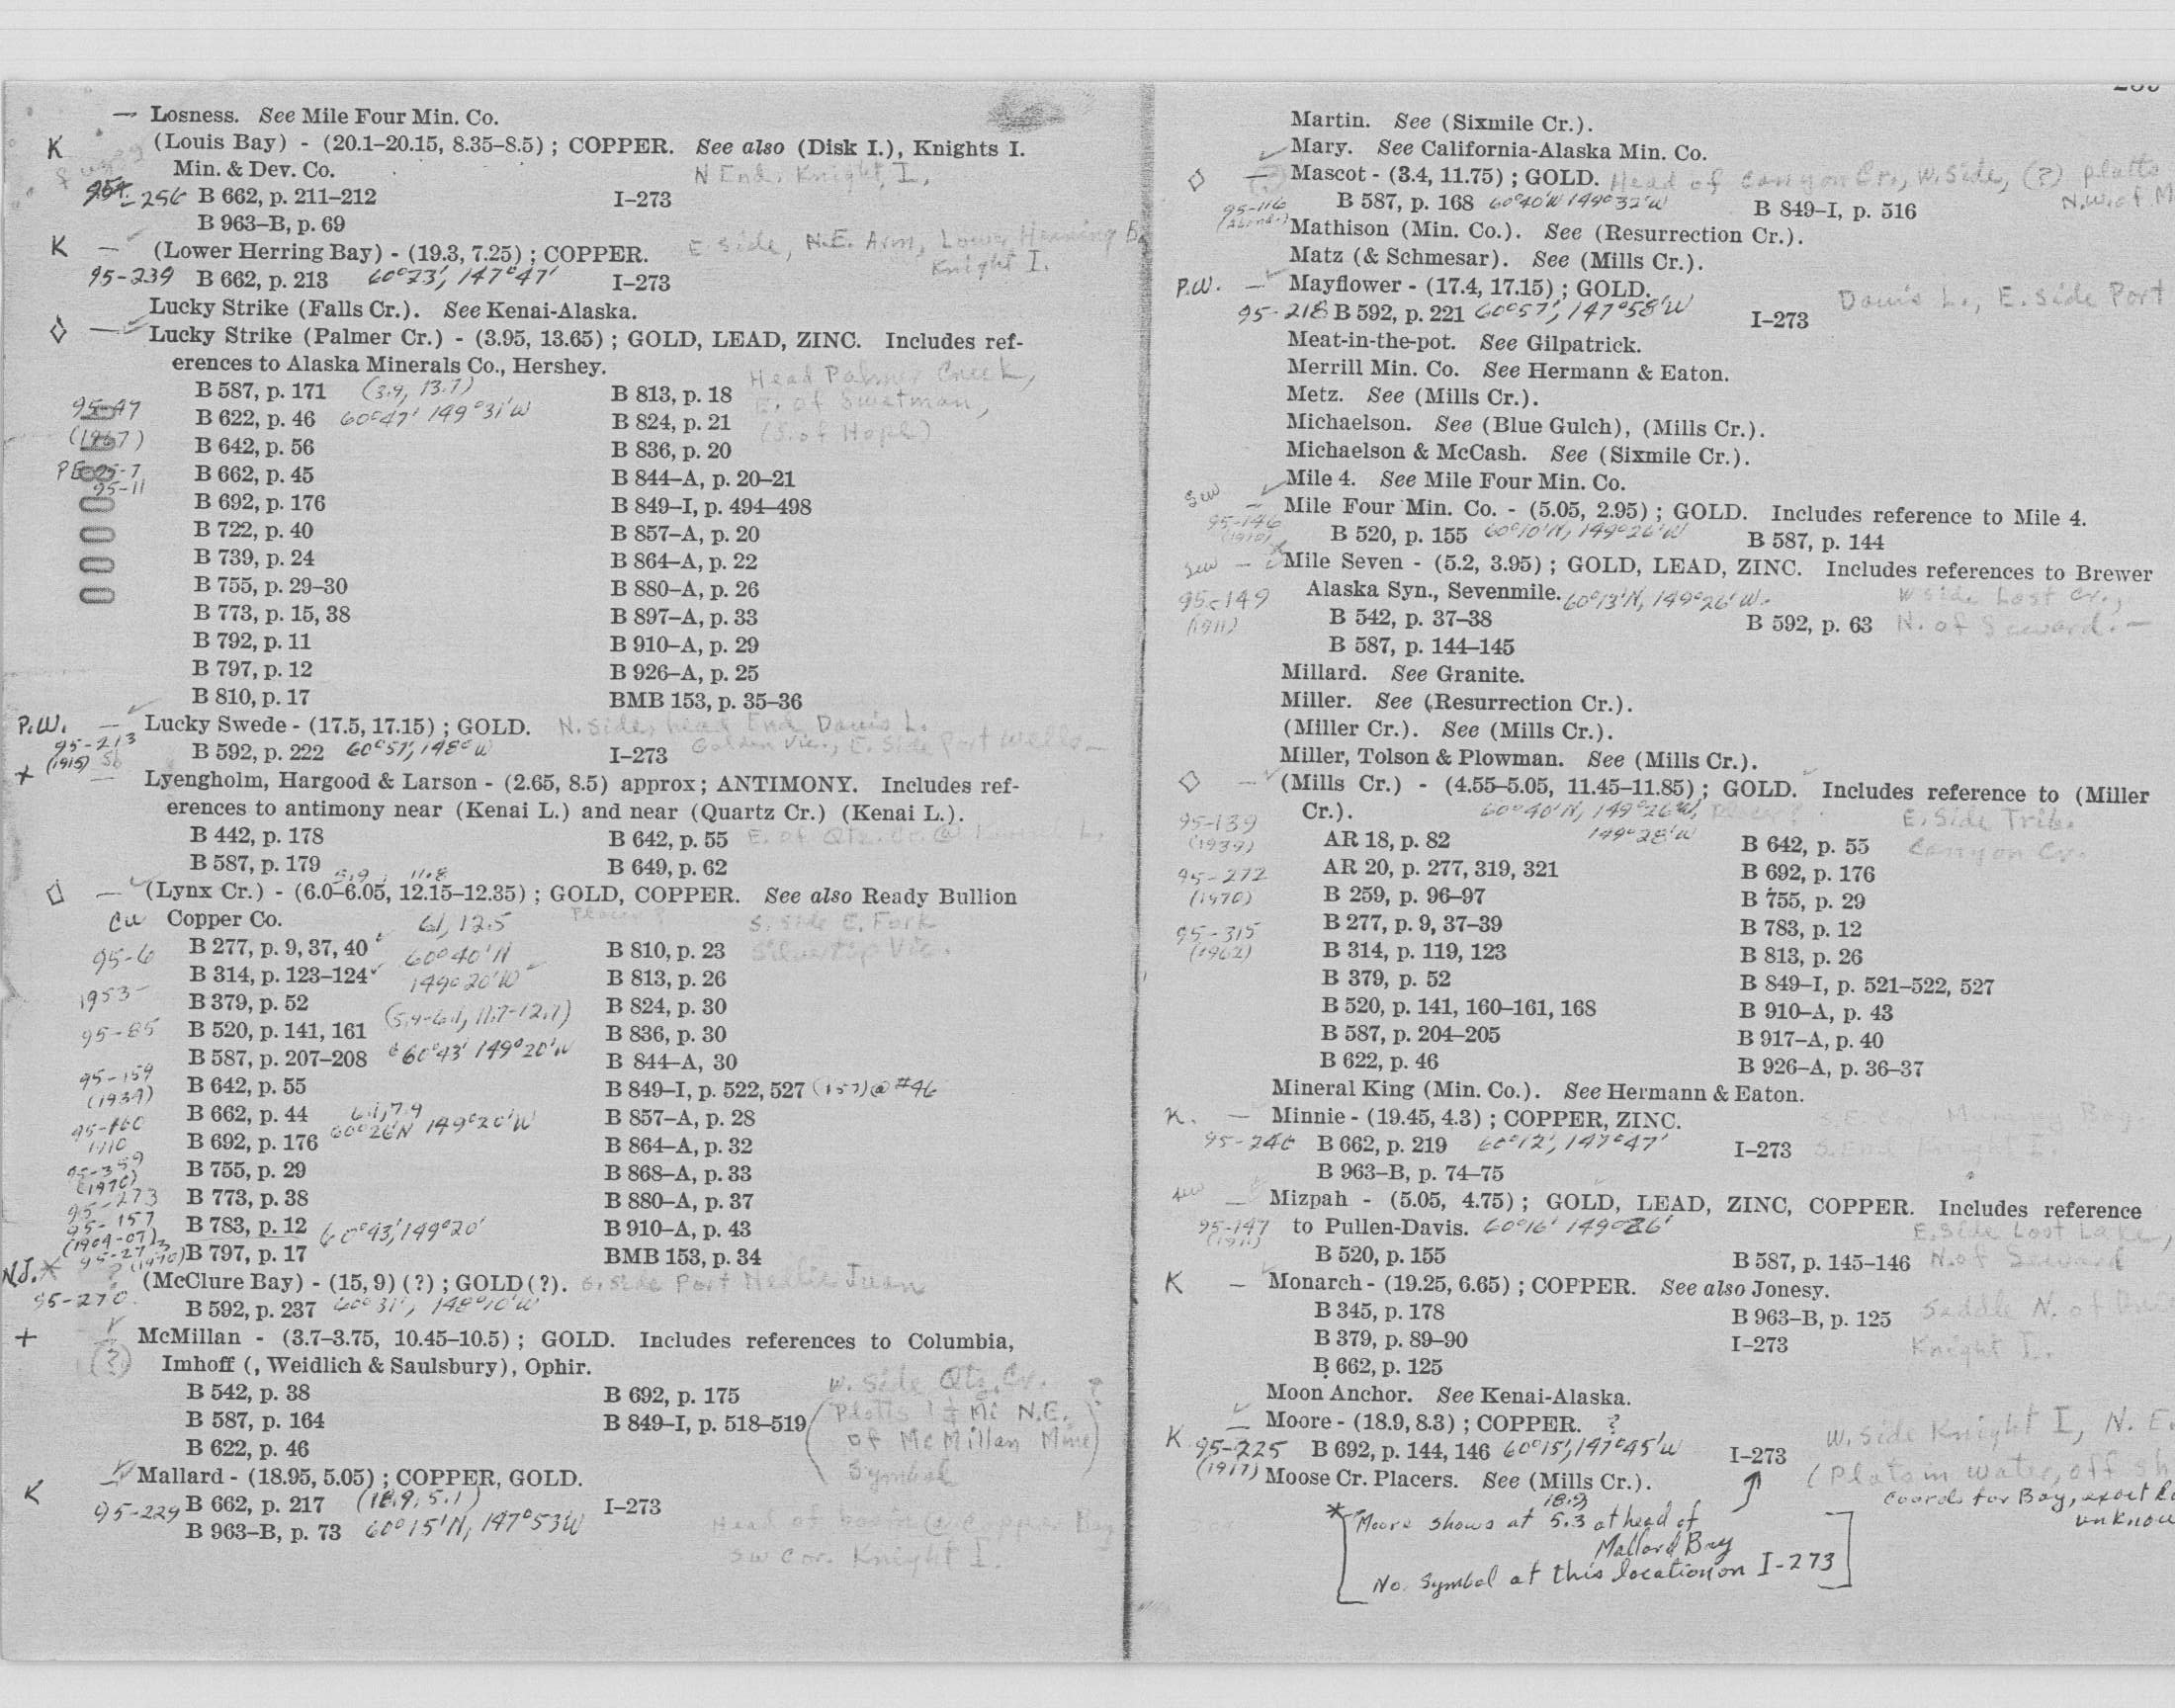 — Losness. See Mile Four Min. Co.
K (Louis Bay) - (20.1–20.15, 8.35–8.5) ; COPPER. See also (Disk I.), Knights I.
Min. & Dev. Co. N End, Knight I.
256 B 662, p. 211–212 I–273
B 963–B, p. 69
K — (Lower Herring Bay) - (19.3, 7.25) ; COPPER. E side, N.E. Arm, Lower Herring B.
Knight I.
95-239 B 662, p. 213 60°23', 147°47' I–273
Lucky Strike (Falls Cr.). See Kenai-Alaska.
— Lucky Strike (Palmer Cr.) - (3.95, 13.65) ; GOLD, LEAD, ZINC. Includes ref-
erences to Alaska Minerals Co., Hershey.
Head Palmer Creek,
B 587, p. 171 (3.9, 13.7) B 813, p. 18
E. of Swetman,
95-47 B 622, p. 46 60°47' 149°31'W B 824, p. 21
(S. of Hope)
(1967) B 642, p. 56 B 836, p. 20
B 662, p. 45 B 844–A, p. 20–21
95-11
B 692, p. 176 B 849–I, p. 494–498
B 722, p. 40 B 857–A, p. 20
B 739, p. 24 B 864–A, p. 22
B 755, p. 29–30 B 880–A, p. 26
B 773, p. 15, 38 B 897–A, p. 33
B 792, p. 11 B 910–A, p. 29
B 797, p. 12 B 926–A, p. 25
B 810, p. 17 BMB 153, p. 35–36
P.W. — Lucky Swede - (17.5, 17.15) ; GOLD. N. side, head End, Davis L.
95-213 B 592, p. 222 60°57', 148°W I–273 Golden Vic., E. Side Port Wells
(1915) Sb
+ — Lyengholm, Hargood & Larson - (2.65, 8.5) approx ; ANTIMONY. Includes ref-
erences to antimony near (Kenai L.) and near (Quartz Cr.) (Kenai L.).
B 442, p. 178 B 642, p. 55 E. of Qtz. Cr. @ Kenai L.
B 587, p. 179 B 649, p. 62
5.9 11.8
— (Lynx Cr.) - (6.0–6.05, 12.15–12.35) ; GOLD, COPPER. See also Ready Bullion
Cu Copper Co. 6.1, 12.5 Placer? S. Side E. Fork
95-6 B 277, p. 9, 37, 40 60°40'N B 810, p. 23 Silvertip Vic.
B 314, p. 123–124 149°20'W B 813, p. 26
1953 B 379, p. 52 (5.9-6.1, 11.7-12.7) B 824, p. 30
95-85 B 520, p. 141, 161 B 836, p. 30
B 587, p. 207–208 60°43' 149°20'W B 844–A, 30
95-159 B 642, p. 55 B 849–I, p. 522, 527 (157) @ #46
(1939) B 662, p. 44 6.1, 7.9 B 857–A, p. 28
95-160 B 692, p. 176 60°26'N 149°20'W B 864–A, p. 32
1910
95-359 B 755, p. 29 B 868–A, p. 33
(1970)
95-273 B 773, p. 38 B 880–A, p. 37
95-157 B 783, p. 12 60°43', 149°20' B 910–A, p. 43
(1904-07)
95-273 (1970) B 797, p. 17 BMB 153, p. 34
N.J. * (McClure Bay) - (15, 9) (?) ; GOLD (?). E. side Port Nellie Juan
95-270 B 592, p. 237 60°31', 148°10'W
+ McMillan - (3.7–3.75, 10.45–10.5) ; GOLD. Includes references to Columbia,
(?) Imhoff (, Weidlich & Saulsbury), Ophir.
B 542, p. 38 B 692, p. 175 W. side Qtz. Cr.
B 587, p. 164 B 849–I, p. 518–519 (Plotts 1½ Mi N.E. ?
B 622, p. 46 of McMillan Mine)
Symbol
K Mallard - (18.95, 5.05) ; COPPER, GOLD.
95-229 B 662, p. 217 (18.9, 5.1) I–273
B 963–B, p. 73 60°15'N, 147°53'W Head of @ Copper Bay
SW Cor. Knight I.
Martin. See (Sixmile Cr.).
Mary. See California-Alaska Min. Co.
— Mascot - (3.4, 11.75) ; GOLD. Head of Canyon Cr., W. side, (?) plotts
95-116 B 587, p. 168 60°40'N 149°32'W B 849–I, p. 516 N.W. of M
Mathison (Min. Co.). See (Resurrection Cr.).
Matz (& Schmesar). See (Mills Cr.).
P.W. — Mayflower - (17.4, 17.15) ; GOLD. Davis L., E. side Port
95-218 B 592, p. 221 60°57', 147°58'W I–273
Meat-in-the-pot. See Gilpatrick.
Merrill Min. Co. See Hermann & Eaton.
Metz. See (Mills Cr.).
Michaelson. See (Blue Gulch), (Mills Cr.).
Michaelson & McCash. See (Sixmile Cr.).
Mile 4. See Mile Four Min. Co.
Sew — Mile Four Min. Co. - (5.05, 2.95) ; GOLD. Includes reference to Mile 4.
95-146 B 520, p. 155 60°10'N, 149°26'W B 587, p. 144
(1910)
Sew — Mile Seven - (5.2, 3.95) ; GOLD, LEAD, ZINC. Includes references to Brewer
95-149 Alaska Syn., Sevenmile. 60°13'N, 149°26'W. W side Lost Cr.,
(1911) B 542, p. 37–38 B 592, p. 63 N. of Seward.
B 587, p. 144–145
Millard. See Granite.
Miller. See (Resurrection Cr.).
(Miller Cr.). See (Mills Cr.).
Miller, Tolson & Plowman. See (Mills Cr.).
— (Mills Cr.) - (4.55–5.05, 11.45–11.85) ; GOLD. Includes reference to (Miller
Cr.). 60°40'N, 149°26'W, Placer? E. Side Trib.
95-139 149°28'W Canyon Cr.
(1939) AR 18, p. 82 B 642, p. 55
95-272 AR 20, p. 277, 319, 321 B 692, p. 176
(1970) B 259, p. 96–97 B 755, p. 29
95-315 B 277, p. 9, 37–39 B 783, p. 12
(1962) B 314, p. 119, 123 B 813, p. 26
B 379, p. 52 B 849–I, p. 521–522, 527
B 520, p. 141, 160–161, 168 B 910–A, p. 43
B 587, p. 204–205 B 917–A, p. 40
B 622, p. 46 B 926–A, p. 36–37
Mineral King (Min. Co.). See Hermann & Eaton.
K. — Minnie - (19.45, 4.3) ; COPPER, ZINC.
95-246 B 662, p. 219 60°12', 147°47' I–273 S. End Knight I.
B 963–B, p. 74–75
Sew — Mizpah - (5.05, 4.75) ; GOLD, LEAD, ZINC, COPPER. Includes reference
95-147 to Pullen-Davis. 60°16' 149°26' E. Side Lost Lake,
(1911) B 520, p. 155 B 587, p. 145–146 N. of Seward
K — Monarch - (19.25, 6.65) ; COPPER. See also Jonesy.
B 345, p. 178 B 963–B, p. 125 Saddle N. of
B 379, p. 89–90 I–273 Knight I.
B 662, p. 125
Moon Anchor. See Kenai-Alaska.
— Moore - (18.9, 8.3) ; COPPER. ? W. side Knight I, N. E.
K 95-225 B 692, p. 144, 146 60°15', 147°45'W I–273
(1917) Moose Cr. Placers. See (Mills Cr.). (Plots in water, off sh
Coords for Bay, exact lo
unknow
18.9
* Moore shows at 5.3 at head of
Mallard Bay
No. Symbol at this location on I-273